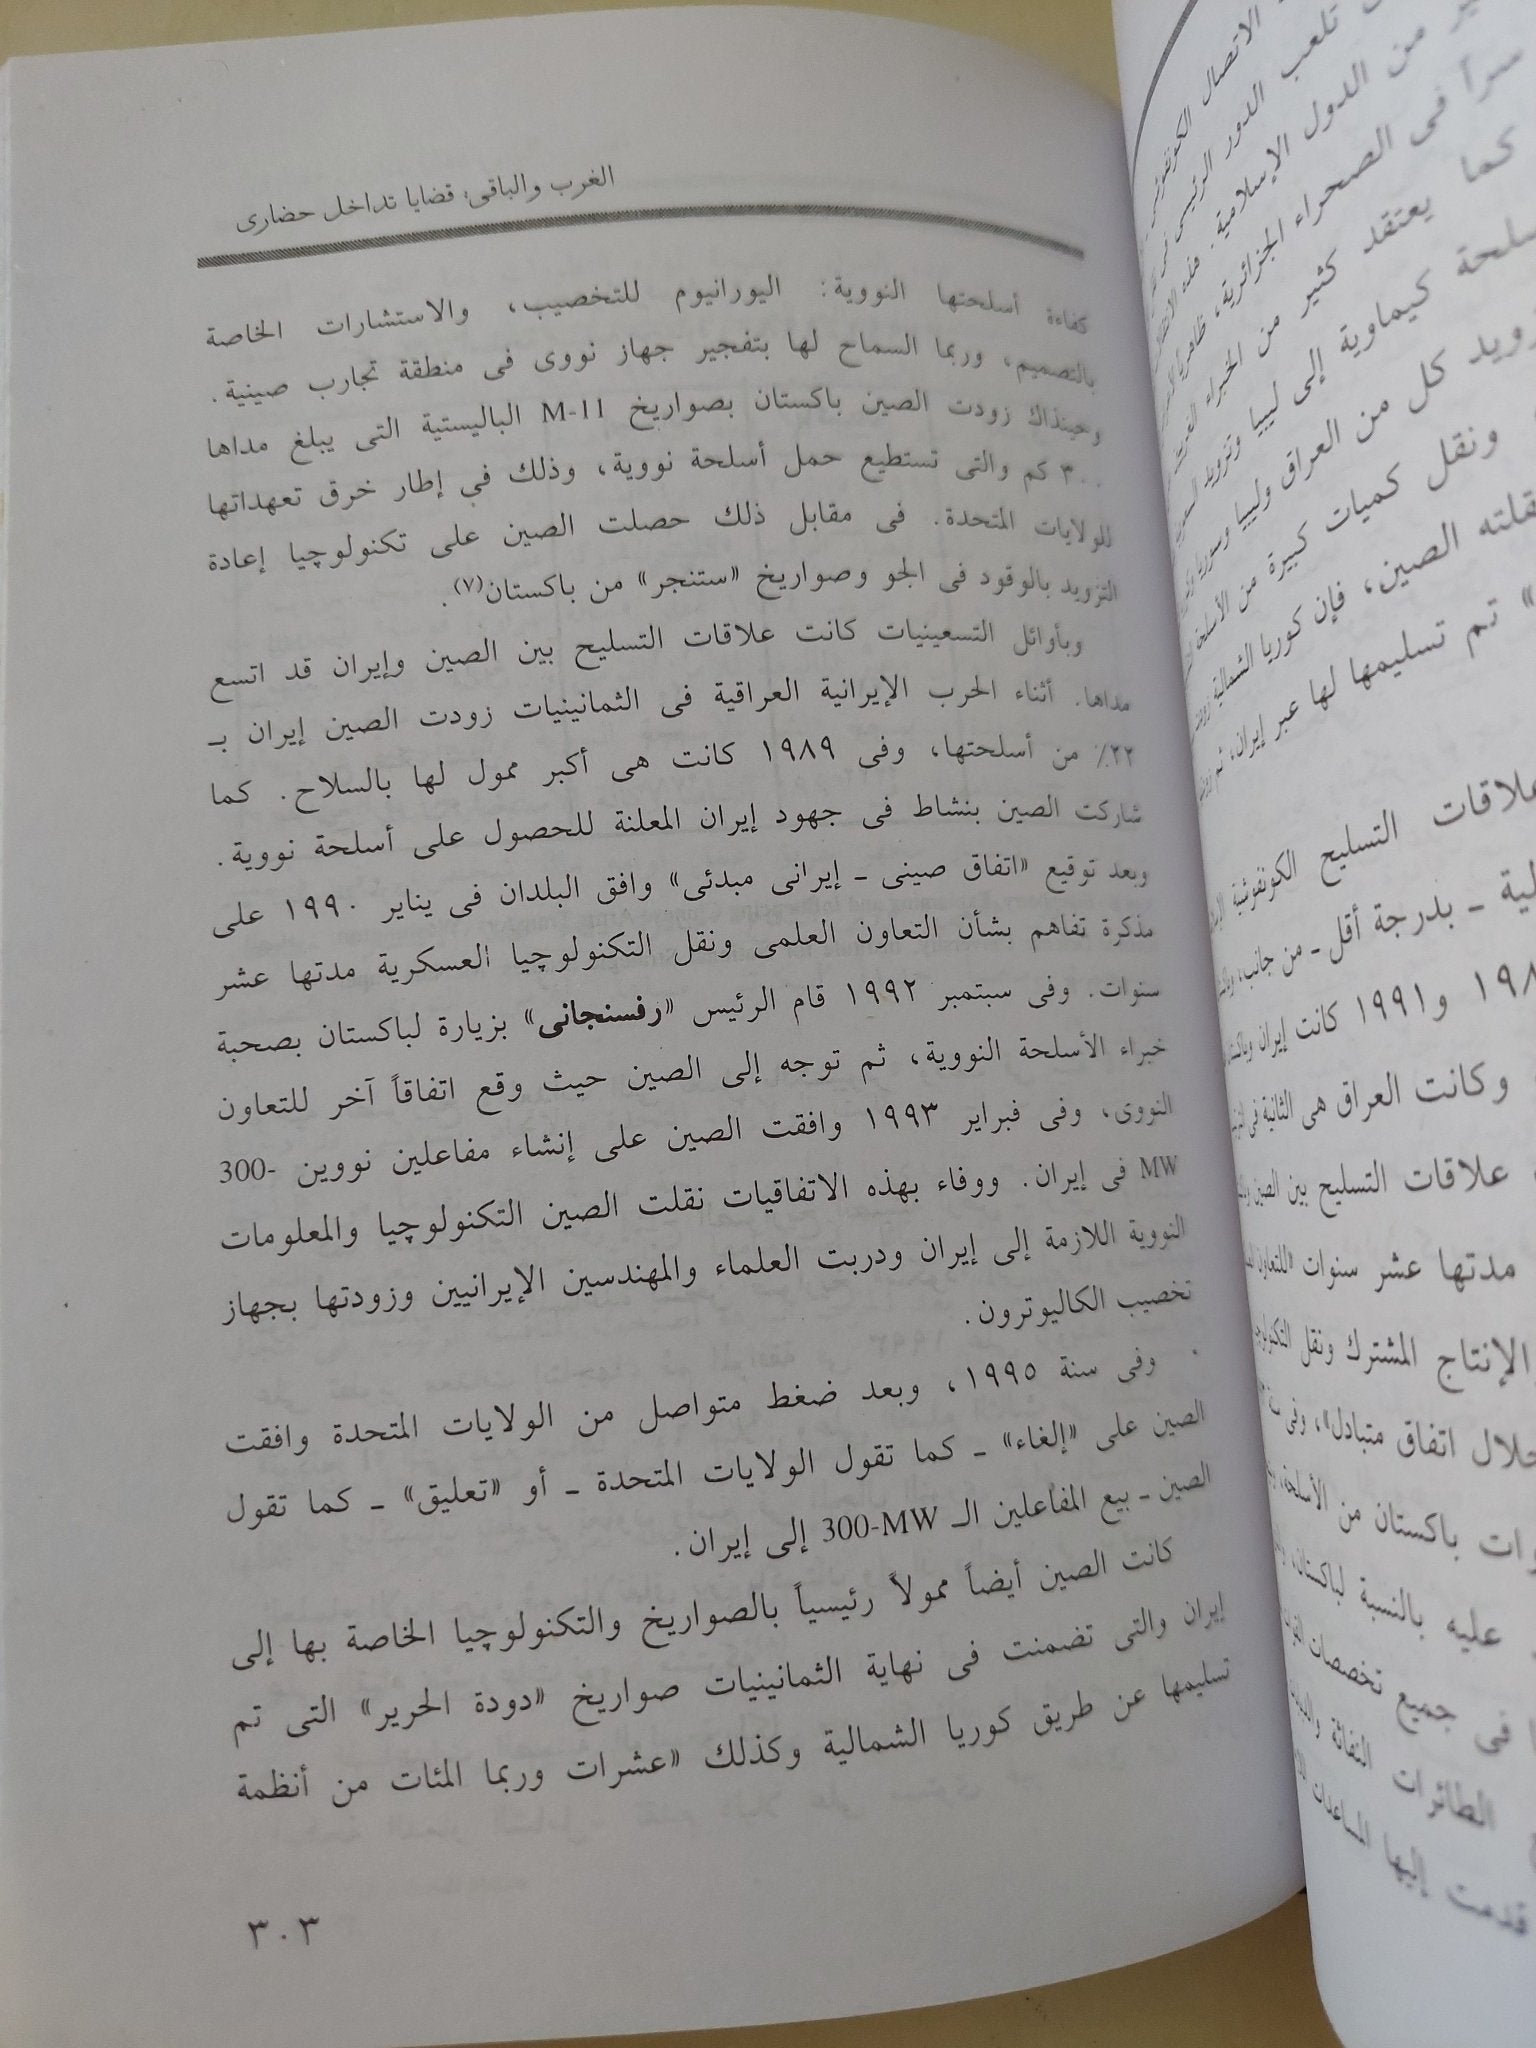 الغرب والباقى: قضايا تداخل حضارى
كفاءة أسلحتها النووية: اليورانيوم للتخصيب، والاستشارات الخاصة
بالتصميم، وربما السماح لها بتفجير جهاز نووى فى منطقة تجارب صينية.
وحينذاك زودت الصين باكستان بصواريخ M-11 الباليستية التى يبلغ مداها
٣٠٠ كم والتى تستطيع حمل أسلحة نووية، وذلك في إطار خرق تعهداتها
للولايات المتحدة. فى مقابل ذلك حصلت الصين على تكنولوچيا إعادة
التزويد بالوقود فى الجو وصواريخ «ستنجر» من باكستان(٧).
وبأوائل التسعينيات كانت علاقات التسليح بين الصين وإيران قد اتسع
مداها. أثناء الحرب الإيرانية العراقية فى الثمانينيات زودت الصين إيران بـ
٢٢٪ من أسلحتها، وفى ١٩٨٩ كانت هى أكبر ممول لها بالسلاح. كما
شاركت الصين بنشاط فى جهود إيران المعلنة للحصول على أسلحة نووية.
وبعد توقيع «اتفاق صينى ـ إيرانى مبدئى» وافق البلدان فى يناير ١٩٩٠ على
مذكرة تفاهم بشأن التعاون العلمى ونقل التكنولوچيا العسكرية مدتها عشر
سنوات. وفى سبتمبر ١٩٩٢ قام الرئيس «رفسنجانى» بزيارة لباكستان بصحبة
خبراء الأسلحة النووية، ثم توجه إلى الصين حيث وقع اتفاقاً آخر للتعاون
النووى، وفى فبراير ١٩٩٣ وافقت الصين على إنشاء مفاعلين نووين 300-
MW فى إيران. ووفاء بهذه الاتفاقيات نقلت الصين التكنولوچيا والمعلومات
النووية اللازمة إلى إيران ودربت العلماء والمهندسين الإيرانيين وزودتها بجهاز
تخصيب الكاليوترون.
وفى سنة ١٩٩٥، وبعد ضغط متواصل من الولايات المتحدة وافقت
الصين على «إلغاء» ـ كما تقول الولايات المتحدة ـ أو «تعليق» ـ كما تقول
الصين ـ بيع المفاعلين الـ 300-MW إلى إيران.
كانت الصين أيضاً ممولاً رئيسياً بالصواريخ والتكنولوچيا الخاصة بها إلى
إيران والتى تضمنت فى نهاية الثمانينيات صواريخ «دودة الحرير» التى تم
تسليمها عن طريق كوريا الشمالية وكذلك «عشرات وربما المئات من أنظمة
٣٠٣
الاتصال
تلعب الدور الرئيسى
من الدول الإسلامية.
سراً فى الصحراء الجزائرية،
كما يعتقد كثير من الخبراء
كيماوية إلى ليبيا وتزويد
كل من العراق وليبيا وسوريا
ونقل كميات كبيرة من الأسلحة
الصين، فإن كوريا الشمالية
تم تسليمها لها عبر إيران، ثم
علاقات التسليح الكونفوشية
ـ بدرجة أقل ـ من جانب،
و١٩٩١ كانت إيران
وكانت العراق هى الثانية فى
علاقات التسليح بين الصين
مدتها عشر سنوات «للتعاون
الإنتاج المشترك ونقل
خلال اتفاق متبادل»، وفى
باكستان من الأسلحة،
عليه بالنسبة لباكستان،
فى جميع تخصصات
الطائرات النفاثة
قدمت إليها المساعدات